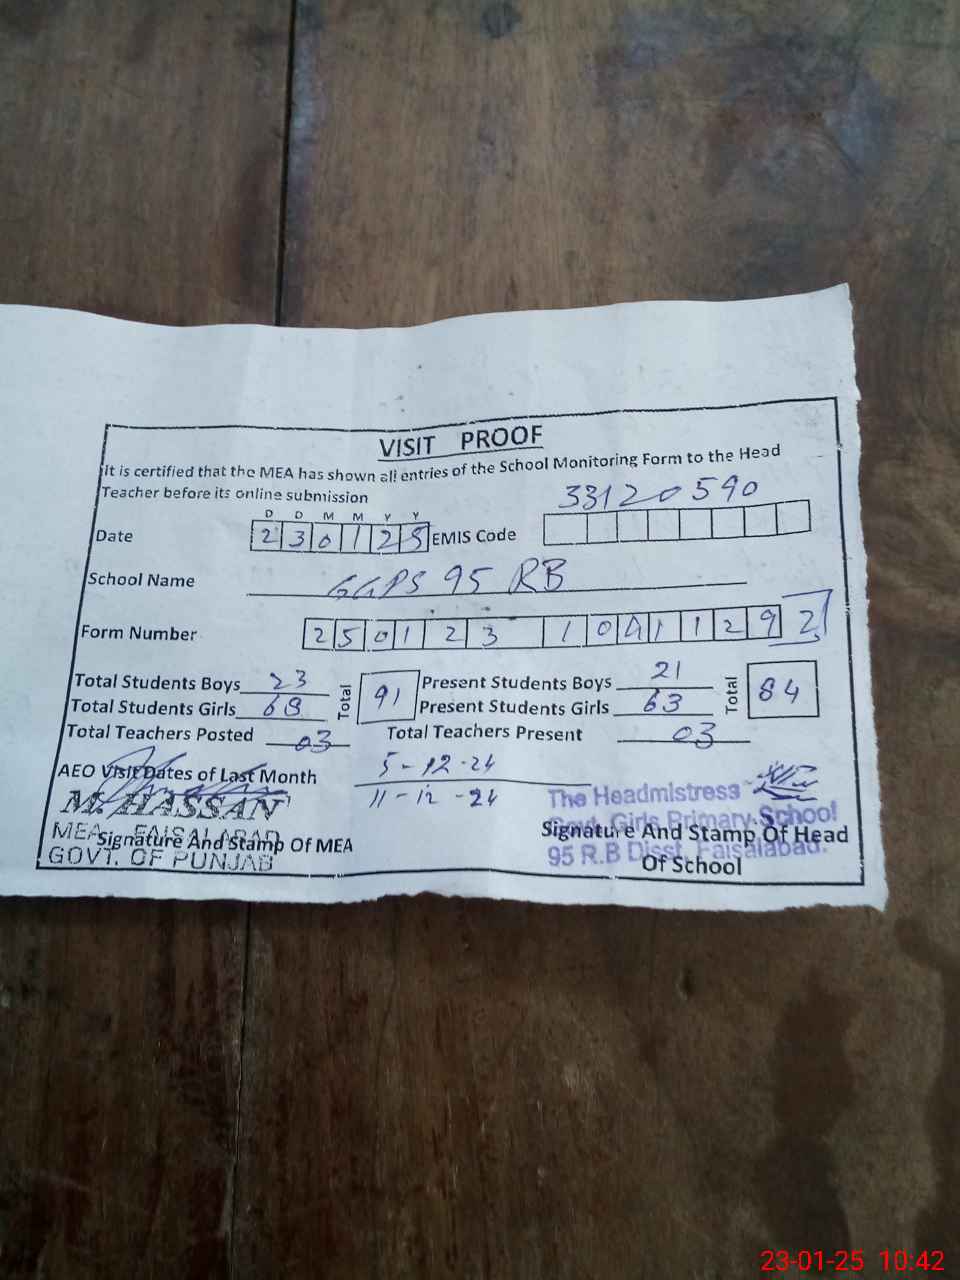 VISIT PROOF
It is certified that the MEA has shown all entries of the School Monitoring Form to the Head
Teacher before its online submission
33120590
D D M M Y Y
Date 230125 EMIS Code
School Name GGPS 95 RB
Form Number 2501 2 3 1 0 1 1 2 9 2
Total Students Boys 23 Total 91 Present Students Boys 21 Total 84
Total Students Girls 68 Present Students Girls 63
Total Teachers Posted 03 Total Teachers Present 03
AEO Visit Dates of Last Month 5-12-24
11-12-24
M. HASSAN
MEA FAISALABAD
GOVT. OF PUNJAB
Signature And Stamp Of MEA
The Headmistress
Govt. Girls Primary School
95 R.B Disst. Faisalabad.
Signature And Stamp Of Head
Of School
23-01-25 10:42